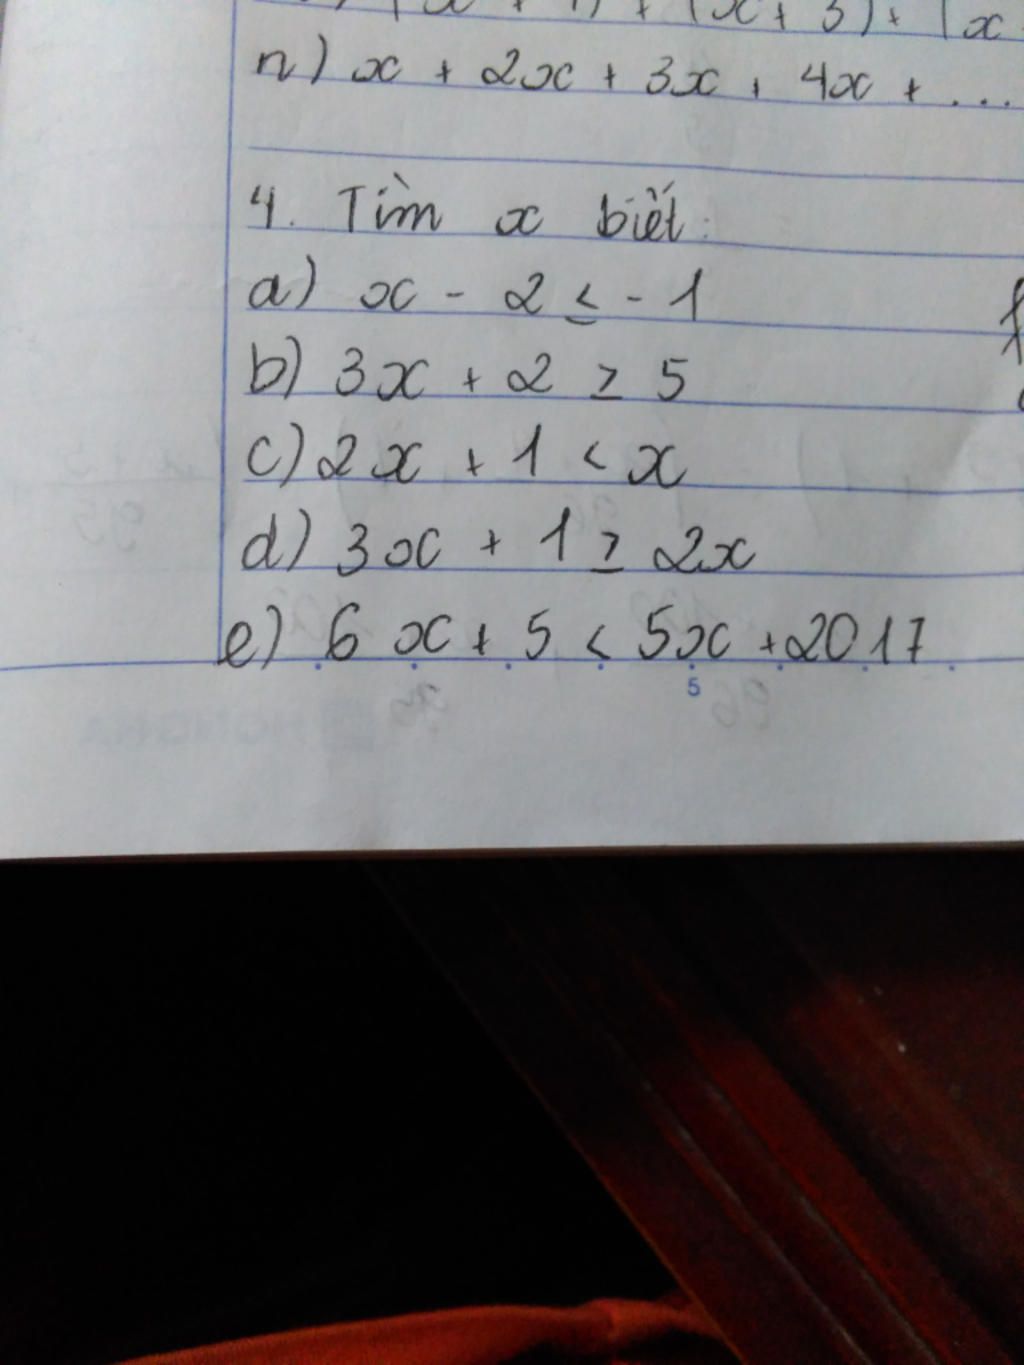 (x + 3) + (x
n) x + 2x + 3x + 4x + ...
4. Tìm x biết:
a) x - 2 ≤ - 1
b) 3x + 2 ≥ 5
c) 2x + 1 < x
d) 3x + 1 ≥ 2x
e) 6x + 5 < 5x + 2017
5